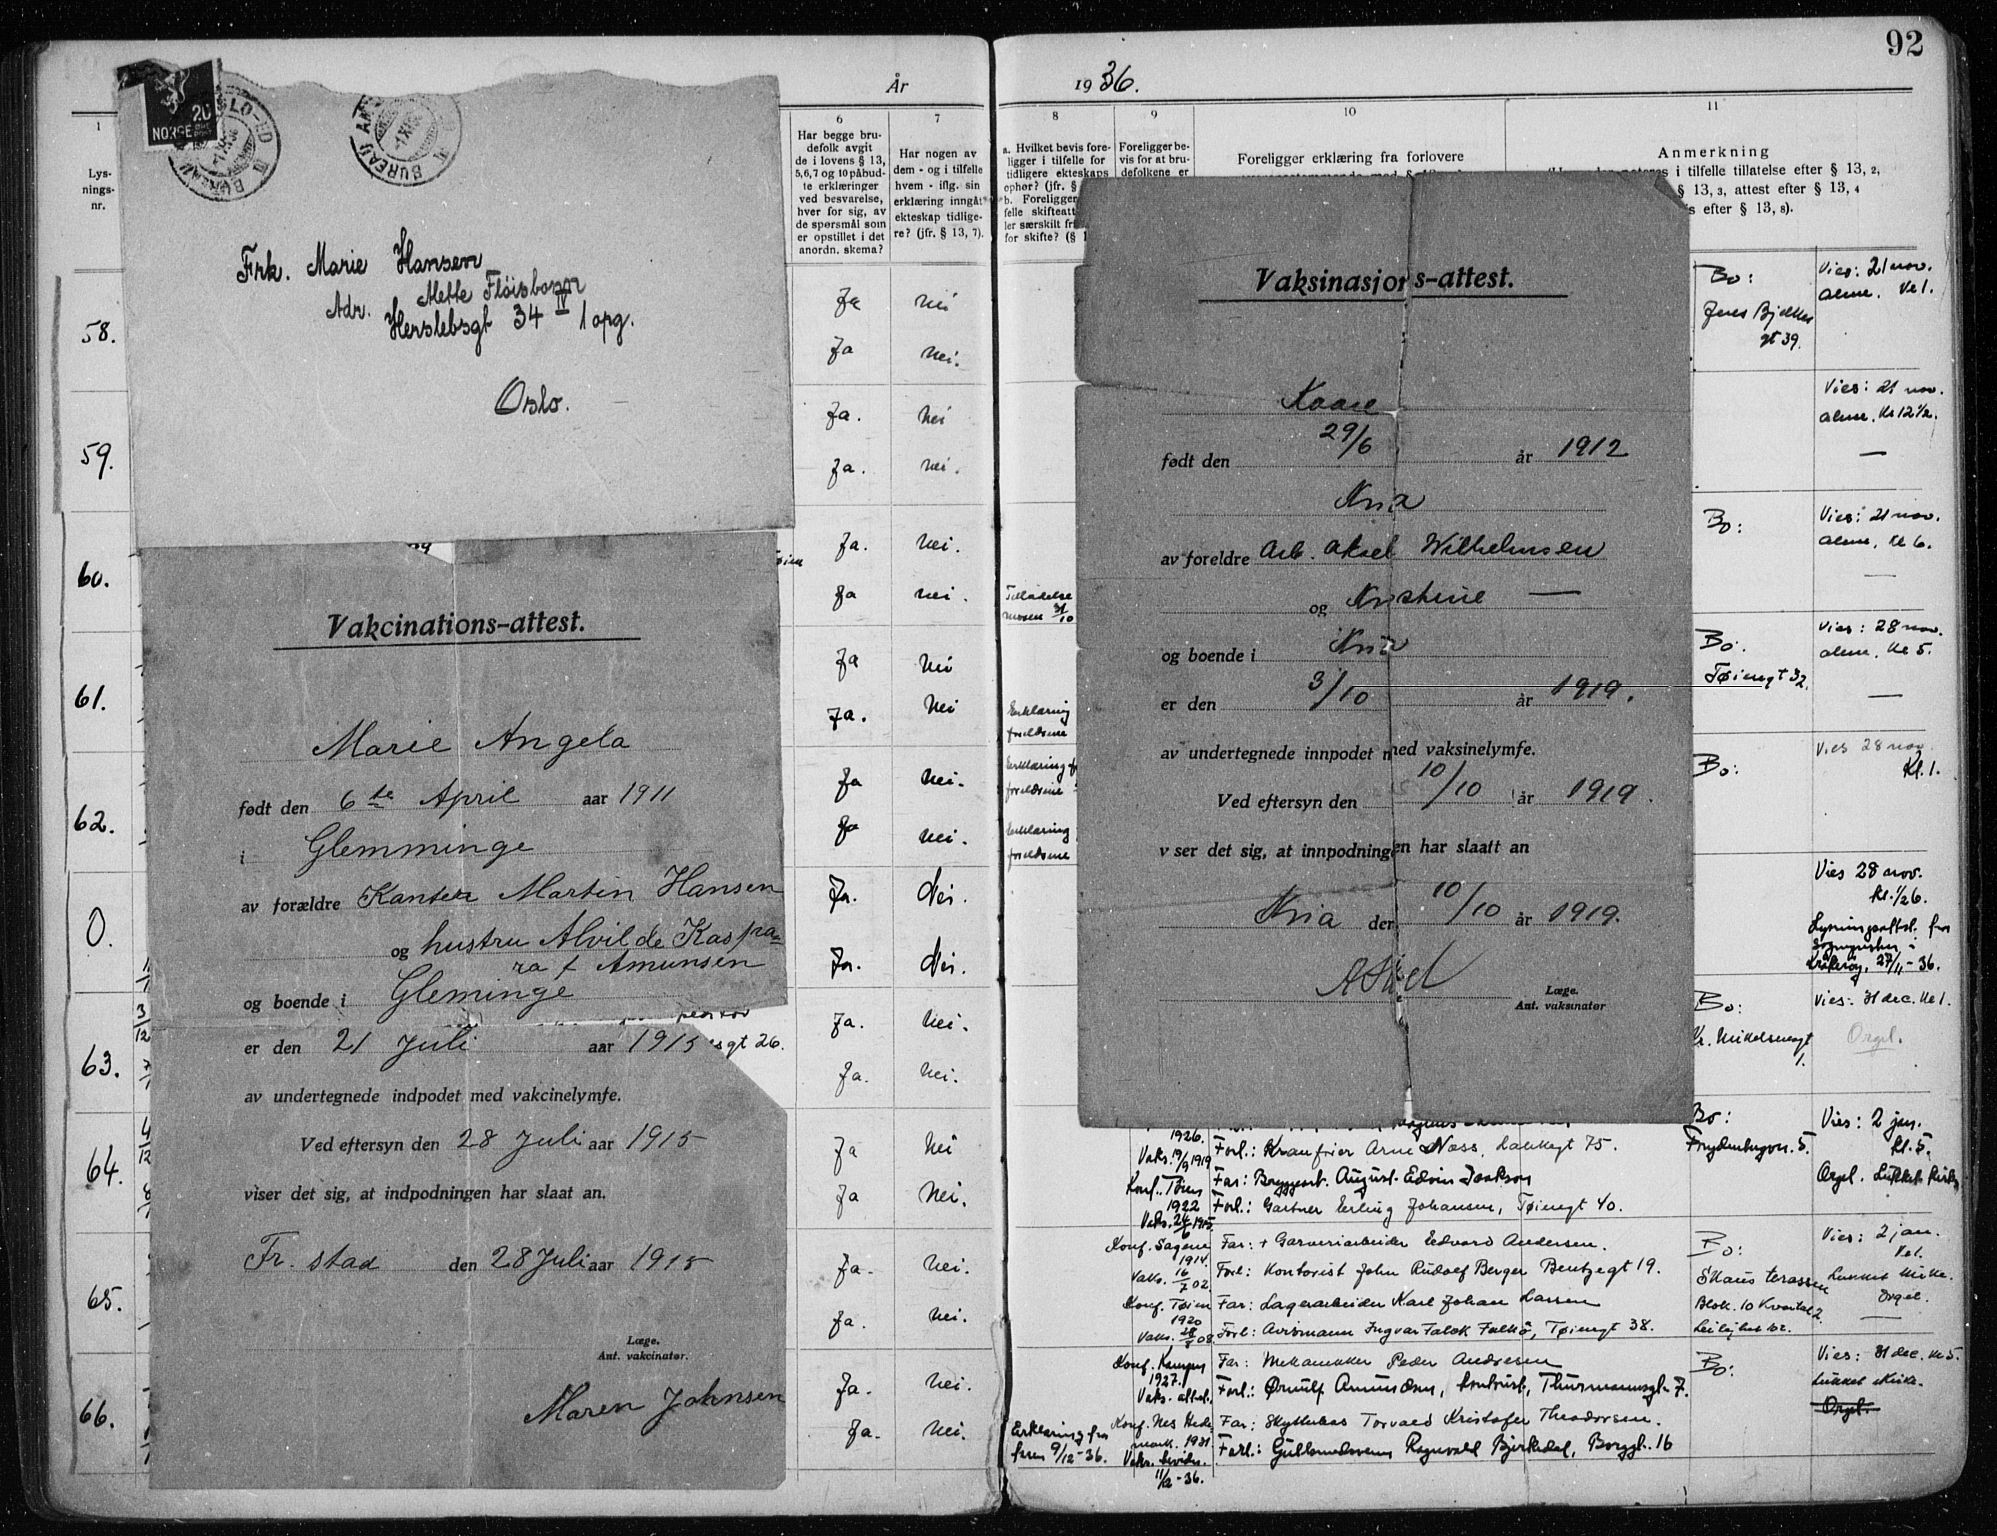 92
År
1936.
1
6
7
8
9
10
11
Lys-
nings-
nr.
Har begge bru-
defolk avgit
de i lovens § 13,
5,6,7 og 10 påbud-
te erklæringer
ved besvarelse,
hver for sig, av
de spørsmål som
er opstillet i det
anordn. skema?
Har nogen av
dem - og i tilfelle
hvem - iflg. sin
erklæring inngåt
ekteskap tidlige-
re? (jfr. § 13, 7).
a. Hvilket bevis fore-
ligger i tilfelle for
tidligere ekteskaps
ophør? (jfr. §
b. Foreligger
felle skifteatt
ler særskilt fr
for skifte? (§ 1
Foreligger be-
vis for at bru-
defolkene er
Foreligger erklæring fra forlovere
Anmerkning
i tilfelle tillatelse efter § 13, 2,
§ 13, 3, attest efter § 13, 4
efter § 13, 8).
20
NORGE
Frk. Marie Hansen
Mette Fløisbonn
Adr. Herslebsgt 34 IV 1 opg.
Oslo.
Vakcinations-attest.
Marie Angela
født den 6te April aar 1911
i Glemminge
av forældre Kantek Martin Hansen
og hustru Alvilde Kaspa-
ra f Amunsen
og boende i Gleminge
er den 21 Juli aar 1915
av undertegnede indpodet med vakcinelymfe.
Ved eftersyn den 28 Juli aar 1915
viser det sig, at indpodningen har slaat an.
Fr. stad den 28 Juli aar 1915
Læge.
Ant. vakcinatør.
Maren Johnsen
sgt 26.
58.
Ja nei
Ja nei.
59.
Ja. nei
Ja. nei.
60.
Ja. nei.
Ja nei.
61.
Ja nei
Ja. nei
62.
Ja nei.
Ja nei.
0.
Ja. Nei.
Ja. Nei.
63.
Ja. nei.
Ja. nei.
64.
Ja nei
Ja nei.
65.
Ja. nei.
Ja. nei.
66.
Ja. nei.
Ja. nei.
Tilladelse
moren 31/10
Erklæring
forældrene
Erklæring f
forældrene
Erklæring
forældrene
Erklæring fra
faren 9/12-36.
Vaksinasjons-attest.
Kaare
født den 29/6 år 1912
Kria
av foreldre Arb. Aksel Wilhelmsen
og Kristine —
og boende i Kria
er den 3/10 år 1919.
av undertegnede innpodet med vaksinelymfe.
Ved eftersyn den 10/10 år 1919.
v ser det sig, at innpodningen har slaatt an
Kria den 10/10 år 1919.
Læge.
Ant. vaksinatør
Bo:
Jens Bjelkes
gt 39.
Vies: 21 nov.
alene. kl 1.
Vies: 21 nov.
alene. kl 12 1/2.
—
Bo:
Vies: 21 nov.
alene, kl 6.
—
Bo:
Tøiengt 32.
Vies: 28 nov.
alene, kl 5.
—
Bo:
Vies 28 nov.
kl. 1.
Vies 28 nov.
kl. 1/26.
Lysningsattst. fra
Sogneprsten i
Kråkerøy, 27/11-36.
Bo:
Kr. Mikelsensgt
1.
Vies: 31 dec. kl 1.
Orgel.
Bo:
Frydenbergvn. 5.
Vies: 2 jan.
kl. 5.
Orgel. Lukket kirke
1926.
Vaks. 19/9 1919
Forl.: Kranfører Arne Næss, Lakkegt 75.
Konf. Tøien
1922
Vaks. 24/6 1915.
Far: Byggearb. August Edvin Isakson
Forl.: Gartner Erling Johansen, Tøiengt 40.
Konf. Sagene
1914.
Vaks. 16/7 02.
Far: + Garveriarbeider Edvard Andersen.
Forl: Kontorist John Rudolf Berger Bentzegt 19.
Konf. Tøien
1920
Vaks. 28/3 08.
Far: Lagerarbeider Karl Johan Larsen
Forl: Avismann Ingvar Falck Falkö, Tøiengt 38.
Bo:
Skaus terassen
Blok. 10 Kvartal 2.
Leilighet 102.
Vies: 2 jan.
kl 1.
Lukket kirke.
Orgel.
—
Konf. Kampen
1927.
Vaks. attest.
Far: Mekanikker Peder Andresen
Forl.: Ørnulf Amundsen, kontorist, Thurmannsgt. 7.
Konf. Nes Hede-
mark. 1931
Vaks. bevidn.
11/12-36.
Far: Skyttebas Torvald Kristofer Theodorsen.
Forl.: Gullsmedsvenn Ragnvald Bjirkedal, Borggt. 16
Bo:
Vies: 31 dec. kl 5.
Lukket kirke.
Orgel.